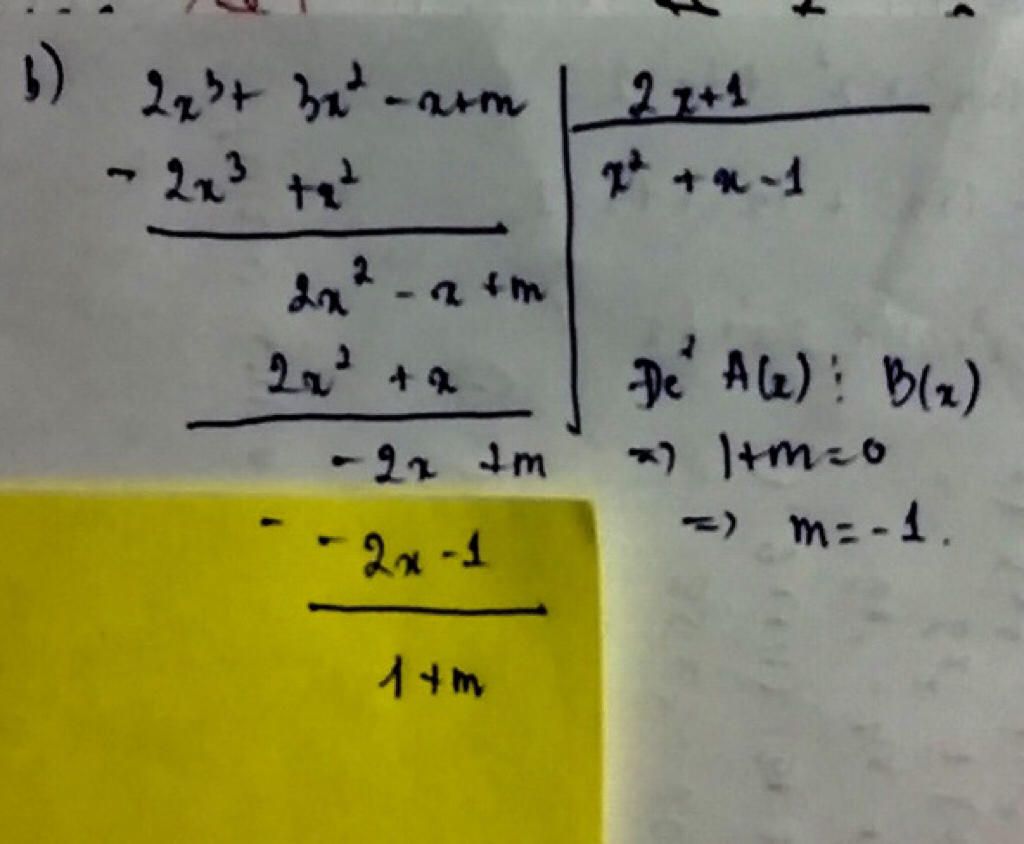 b) 2x³ + 3x² - x + m | 2x+1
- 2x³ + x² | x² + x - 1
2x² - x + m
2x² + x
- 2x + m
- - 2x - 1
1 + m
Để A(x) ⋮ B(x)
=> 1+m=0
=> m = -1.